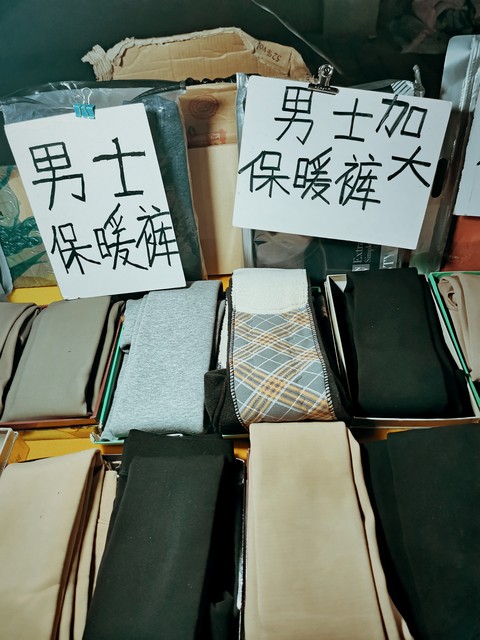 男士
保暖裤
男士加大
保暖裤
Extra